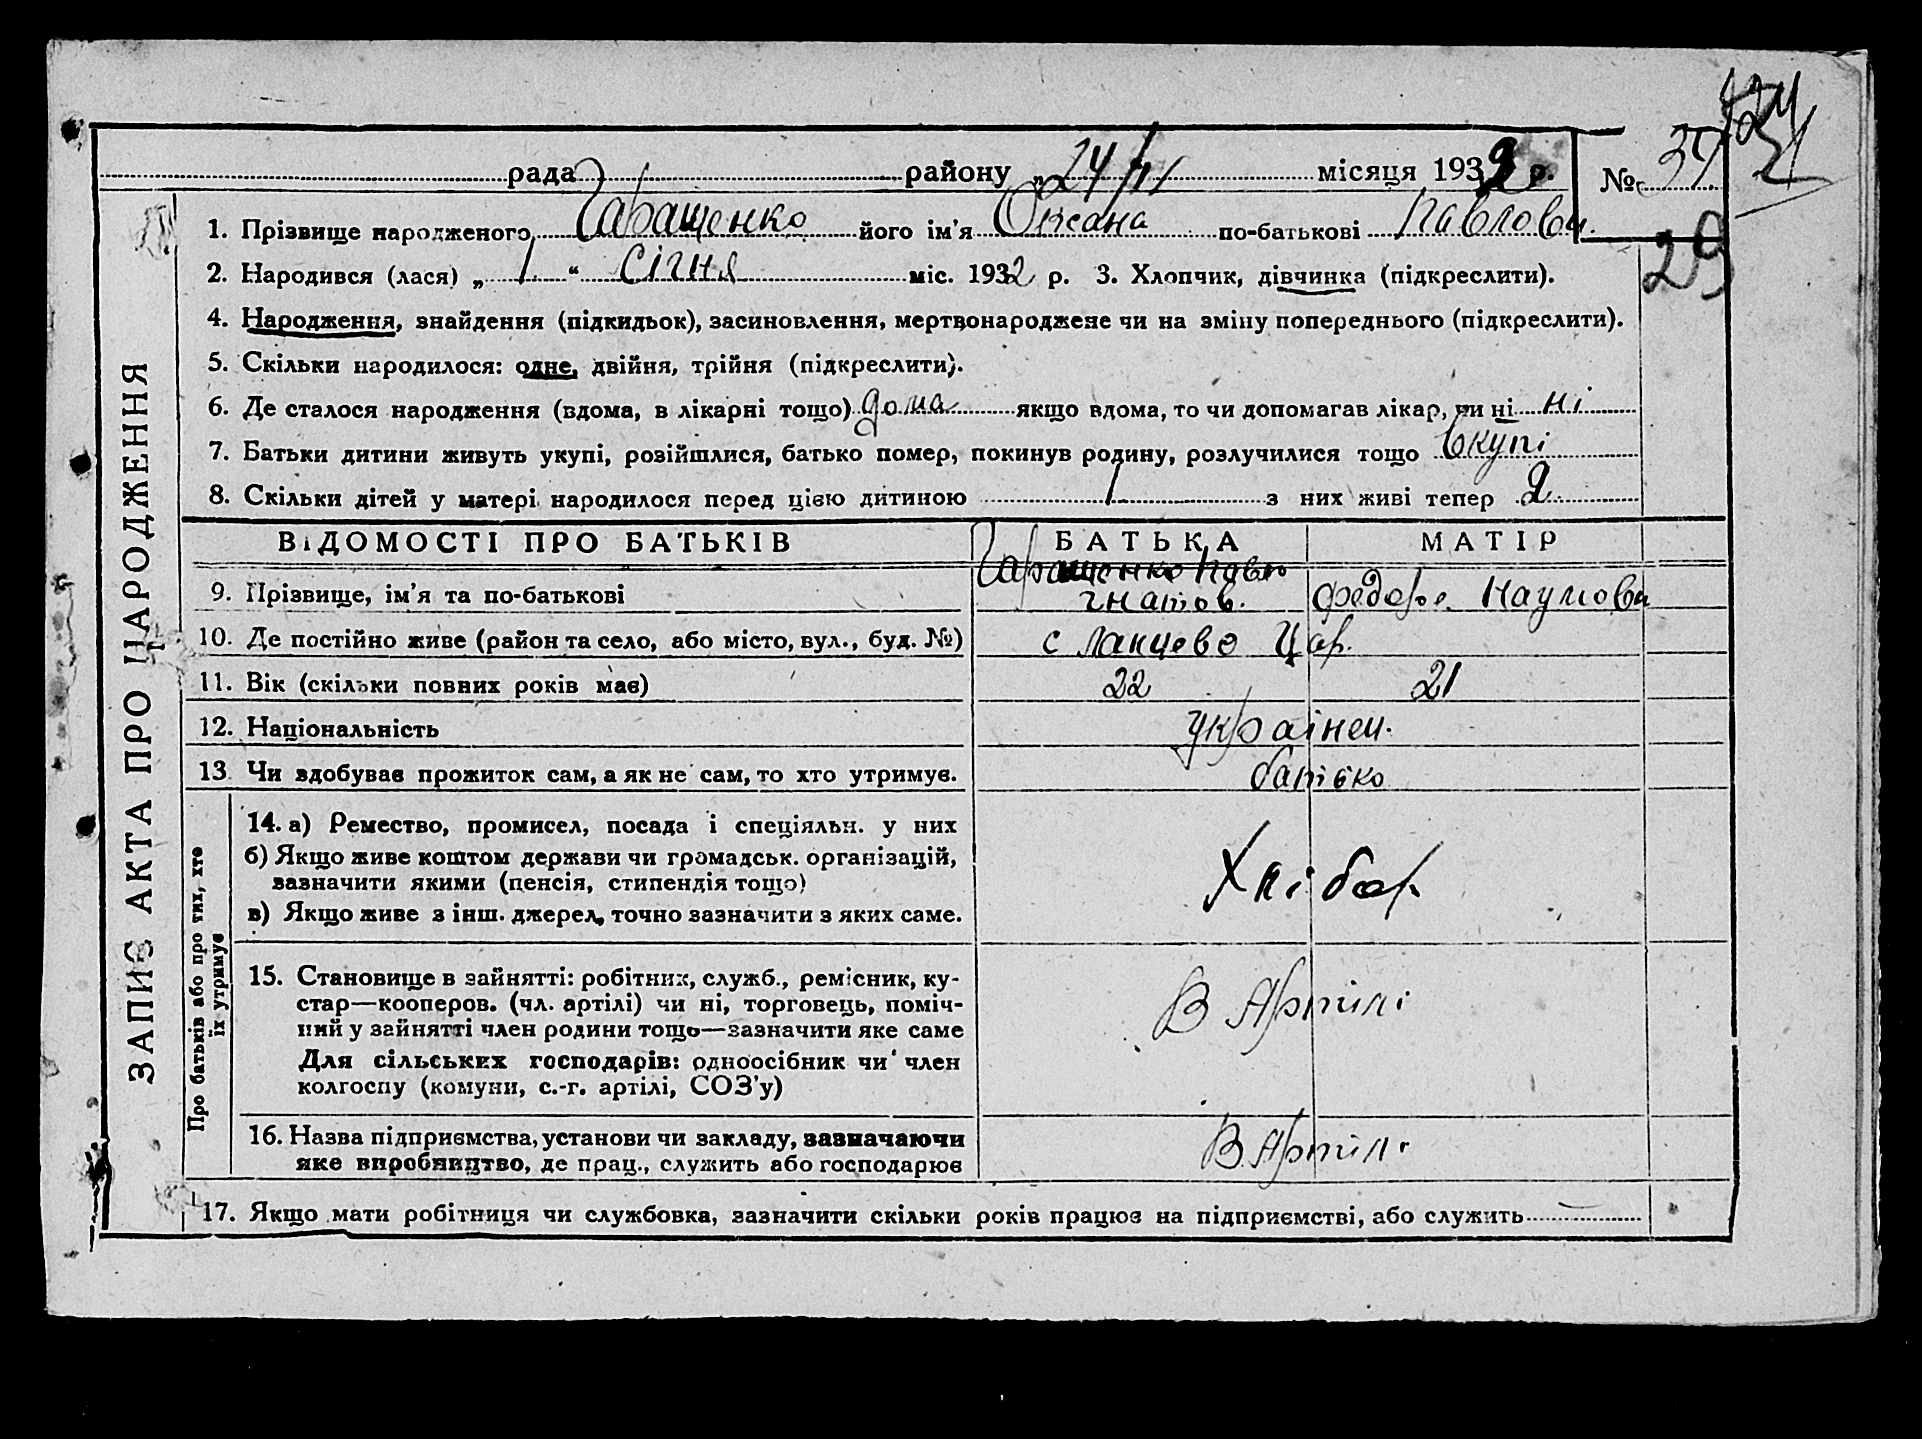 рада района „24/II місяця 1932 р. № 34
29
1. Прізвище народженого Гаращенко його ім'я Оксана по-батькові Павлова
2. Народився (лася) „1“ січня міс. 1932 р. 3. Хлопчик, дівчинка (підкреслити).
4. Народження, знайдення (підкидьок), засиновлення, мертвонароджене чи на зміну попереднього (підкреслити).
5. Скільки народилося: одне, двійня, трійня (підкреслити).
6. Де сталося народження (вдома, в лікарні тощо) дома якщо вдома, то чи допомагав лікар, чи ні ні
7. Батьки дитини живуть укупі, розійшлися, батько помер, покинув родину, розлучилися тощо Вкупі
8. Скільки дітей у матері народилося перед цією дитиною 1 з них живі тепер 2
ЗАПИС АКТА ПРО НАРОДЖЕННЯ
ВІДОМОСТІ ПРО БАТЬКІВ БАТЬКА МАТІР
Гаращенко Павло
9. Прізвище, ім'я та по-батькові Гнатов. Федора Наумова
10. Де постійно живе (район та село, або місто, вул., буд. №) с Ланцево Цар.
11. Вік (скільки повних років має) 22 21
12. Національність українец.
13. Чи здобуває прожиток сам, а як не сам, то хто утримує. батько
Про батьків або про тих, хто
їх утримує
14. а) Ремество, промисел, посада і спеціяльн. у них
б) Якщо живе коштом держави чи громадськ. організацій,
зазначити якими (пенсія, стипендія тощо)
в) Якщо живе з інш. джерел, точно зазначити з яких саме.
Хлібор
15. Становище в зайнятті: робітник, служб., ремісник, ку-
стар—кооперов. (чл. артілі) чи ні, торговець, поміч-
ний у зайнятті член родини тощо—зазначити яке саме
Для сільських господарів: одноосібник чи член
колгоспу (комуни, с.-г. артілі, СОЗ'у)
В Артілі
16. Назва підприємства, установи чи закладу, зазначаючи
яке виробництво, де прац., служить або господарює
В Артілі
17. Якщо мати робітниця чи службовка, зазначити скільки років працює на підприємстві, або служить